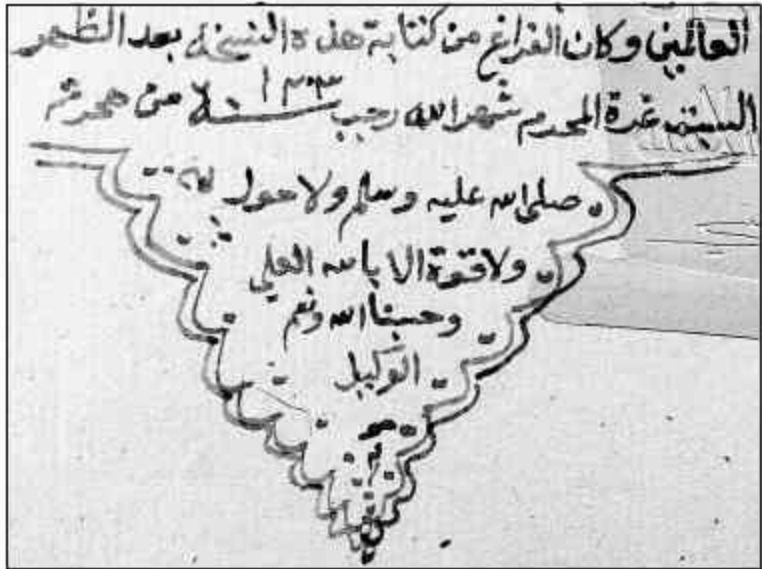 العالمين وكان الفراغ من كتابة هذه النسخة بعد الظهر
السبت غرة المحرم شهر الله رجب سنة ١٣٠٣ من هجرته
صلى الله عليه وسلم ولا حول
ولا قوة الا بالله العلي
وحسبنا الله ونعم
الوكيل